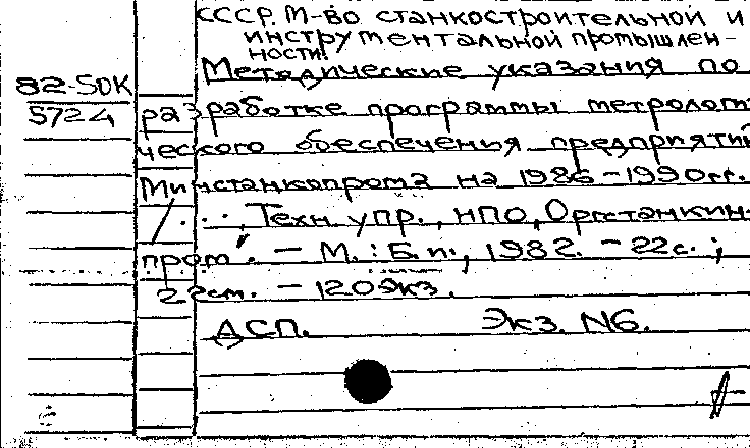 СССР. М-во станкостроительной и
инструментальной промышлен-
ности.
Методические указания по
82-50К
5724
разработке программы метрологи
ческого обеспечения предприятий
Минстанкопрома на 1986-1990гг.
/..., Техн. упр., НПО „Оргстанкин-
пром". - М.: Б.и., 1982. - 22с.;
22см. - 120экз.
ДСП. Экз. N6.